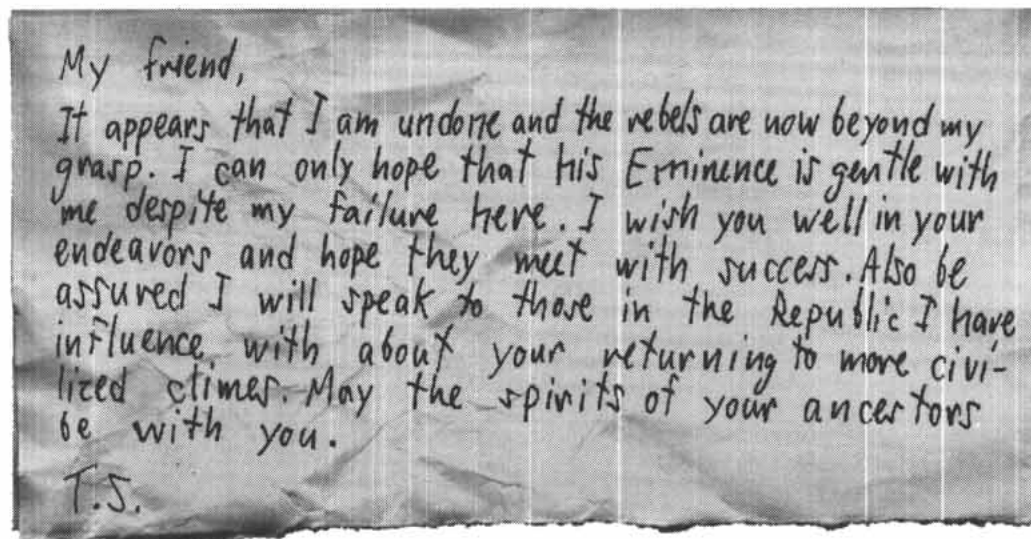 My friend,
It appears that I am undone and the rebels are now beyond my
grasp. I can only hope that his Eminence is gentle with
me despite my failure here. I wish you well in your
endeavors and hope they meet with success. Also be
assured I will speak to those in the Republic I have
influence with about your returning to more civi-
lized climes. May the spirits of your ancestors
be with you.
T.S.